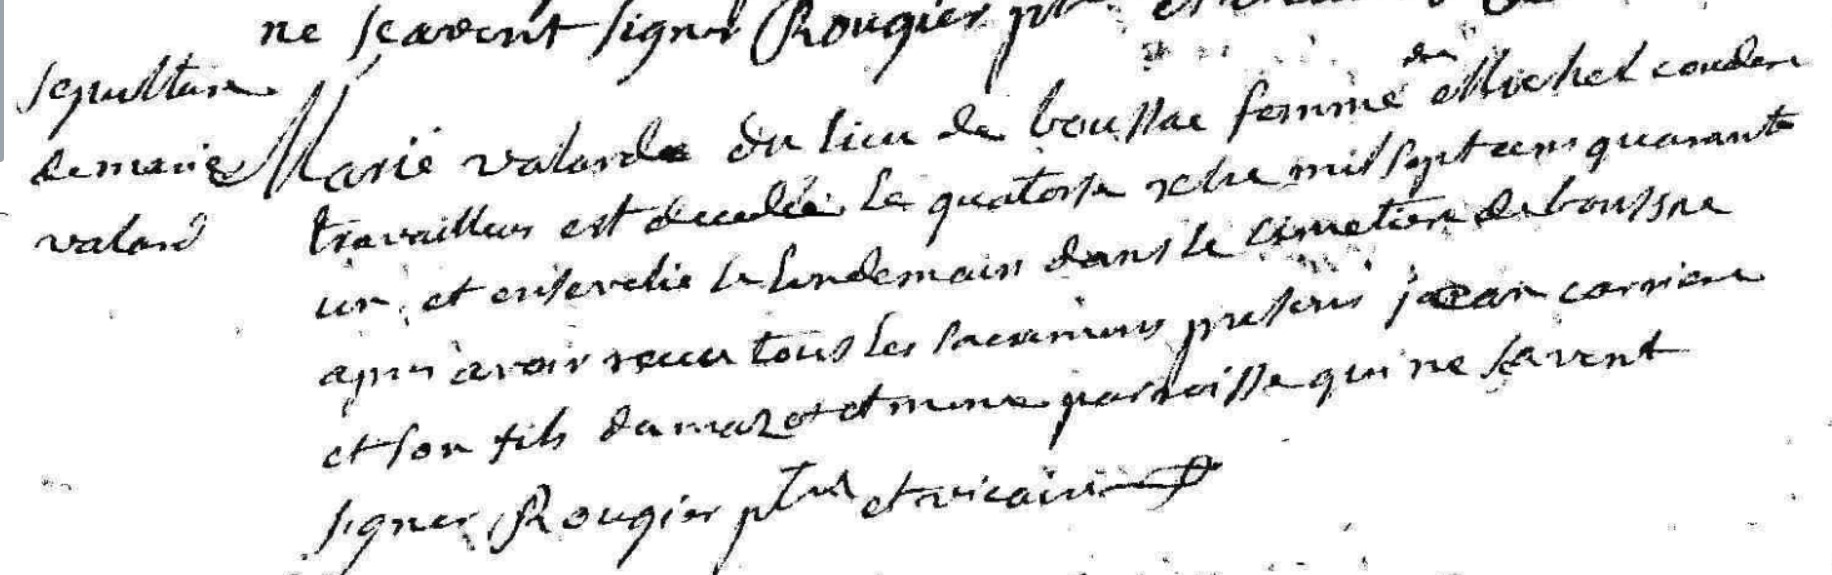 ne scavent signer Rougier ptre et
sepulture
de marie
valard
Marie valarde du lieu de boussac femme de Michel couderc
travailleur est decedée le quatorse xbre mil sept cens quarante
un, et ensevelie le lendemain dans le cimetiere de boussac
apres avoir receu tous les sacremens presens jean carriere
et son fils du mazet et meme parroisse qui ne savent
signer Rougier ptre et vicaire